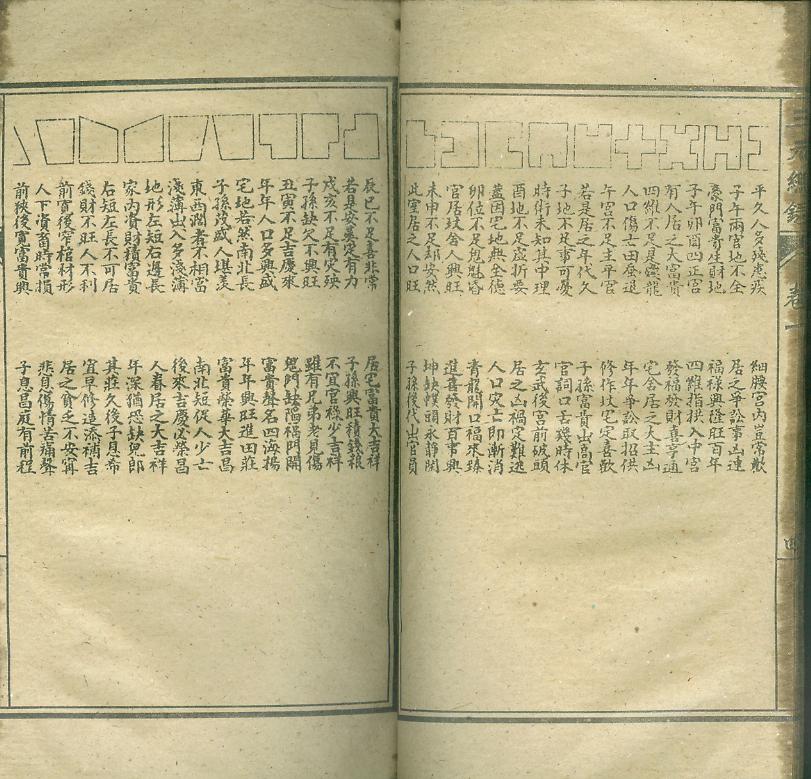 三元總錄 卷一 四
平久人多殘患疾 細腰宮內豈常歡
子午兩宮地不全 居之爭訟事凶連
豪門富貴生財地 福祿興隆旺百年
子午卯酉四正宮 四維指拱入中宮
有人居之大富貴 發福發財喜亨通
四維不足是癈龍 宅舍居之大主凶
人口傷亡田蚕退 年年爭訟取招供
午宮不足主平官 修作坟宅定喜歡
若是居之年代久 子孫富貴出高官
子地不足事可憂 官詞口舌幾時休
時術未知其中理 玄武後宮前破頭
酉地不足虛折要 居之凶禍定難逃
蓋因宅地無全德 人口灾亡即漸消
卯位不足鬼魅昏 青龍開口福來臻
官居歧舍人興旺 進喜發財百事興
未申不足却安然 坤缺蝶頭永靜閑
此室居之人口旺 子孫後代出官員
辰巳不足喜非常 居宅富貴大吉祥
若是安墓定有力 子孫興旺積錢粮
戌亥不足有灾殃 不宜官祿少吉祥
子孫缺欠不興旺 雖有兄弟老見傷
丑寅不足吉慶來 鬼門缺陷禍門開
年年人口多興盛 富貴聲名四海揚
宅地若然南北長 年年興旺進田莊
子孫茂盛人堪羨 富貴榮華大吉昌
東西濶者不相當 南北短促人少亡
淺薄出入多淺薄 後來吉慶必榮昌
地形左短右邊長 人眷居之大吉祥
家內資財積富貴 年深猶恐缺兒郎
右短左長不可居 其莊久後子息希
錢財不旺人不利 宜早修造添補吉
前寬後窄棺材形 居之貧乏不安寗
人下資畜時常損 悲見傷情苦痛聲
前狹後寬富貴興 子息昌庭有前程